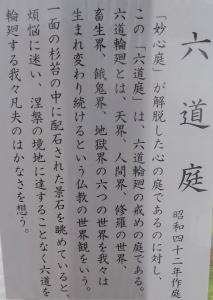 六道庭
昭和四十二年作庭
「妙心庭」が解脱した心の庭であるのに対し、
この「六道庭」は、六道輪廻の戒めの庭である。
六道輪廻とは、天界、人間界、修羅の世界、
畜生界、餓鬼界、地獄界の六つの世界を我々は
生まれ変わり続けるという仏教の世界観をいう。
一面の杉苔の中に配石された景石を眺めていると、
煩悩に迷い、涅槃の境地に達することなく六道を
輪廻する我々凡夫のはかなさを想う。